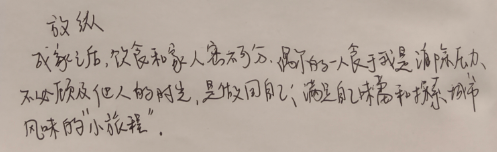 放纵
成家之后,饮食和家人密不可分、偶尔的一人食于我是消除压力、
不必顾及他人的时光,是做回自己;满足自己味蕾和探索城市
风味的“小旅程”.